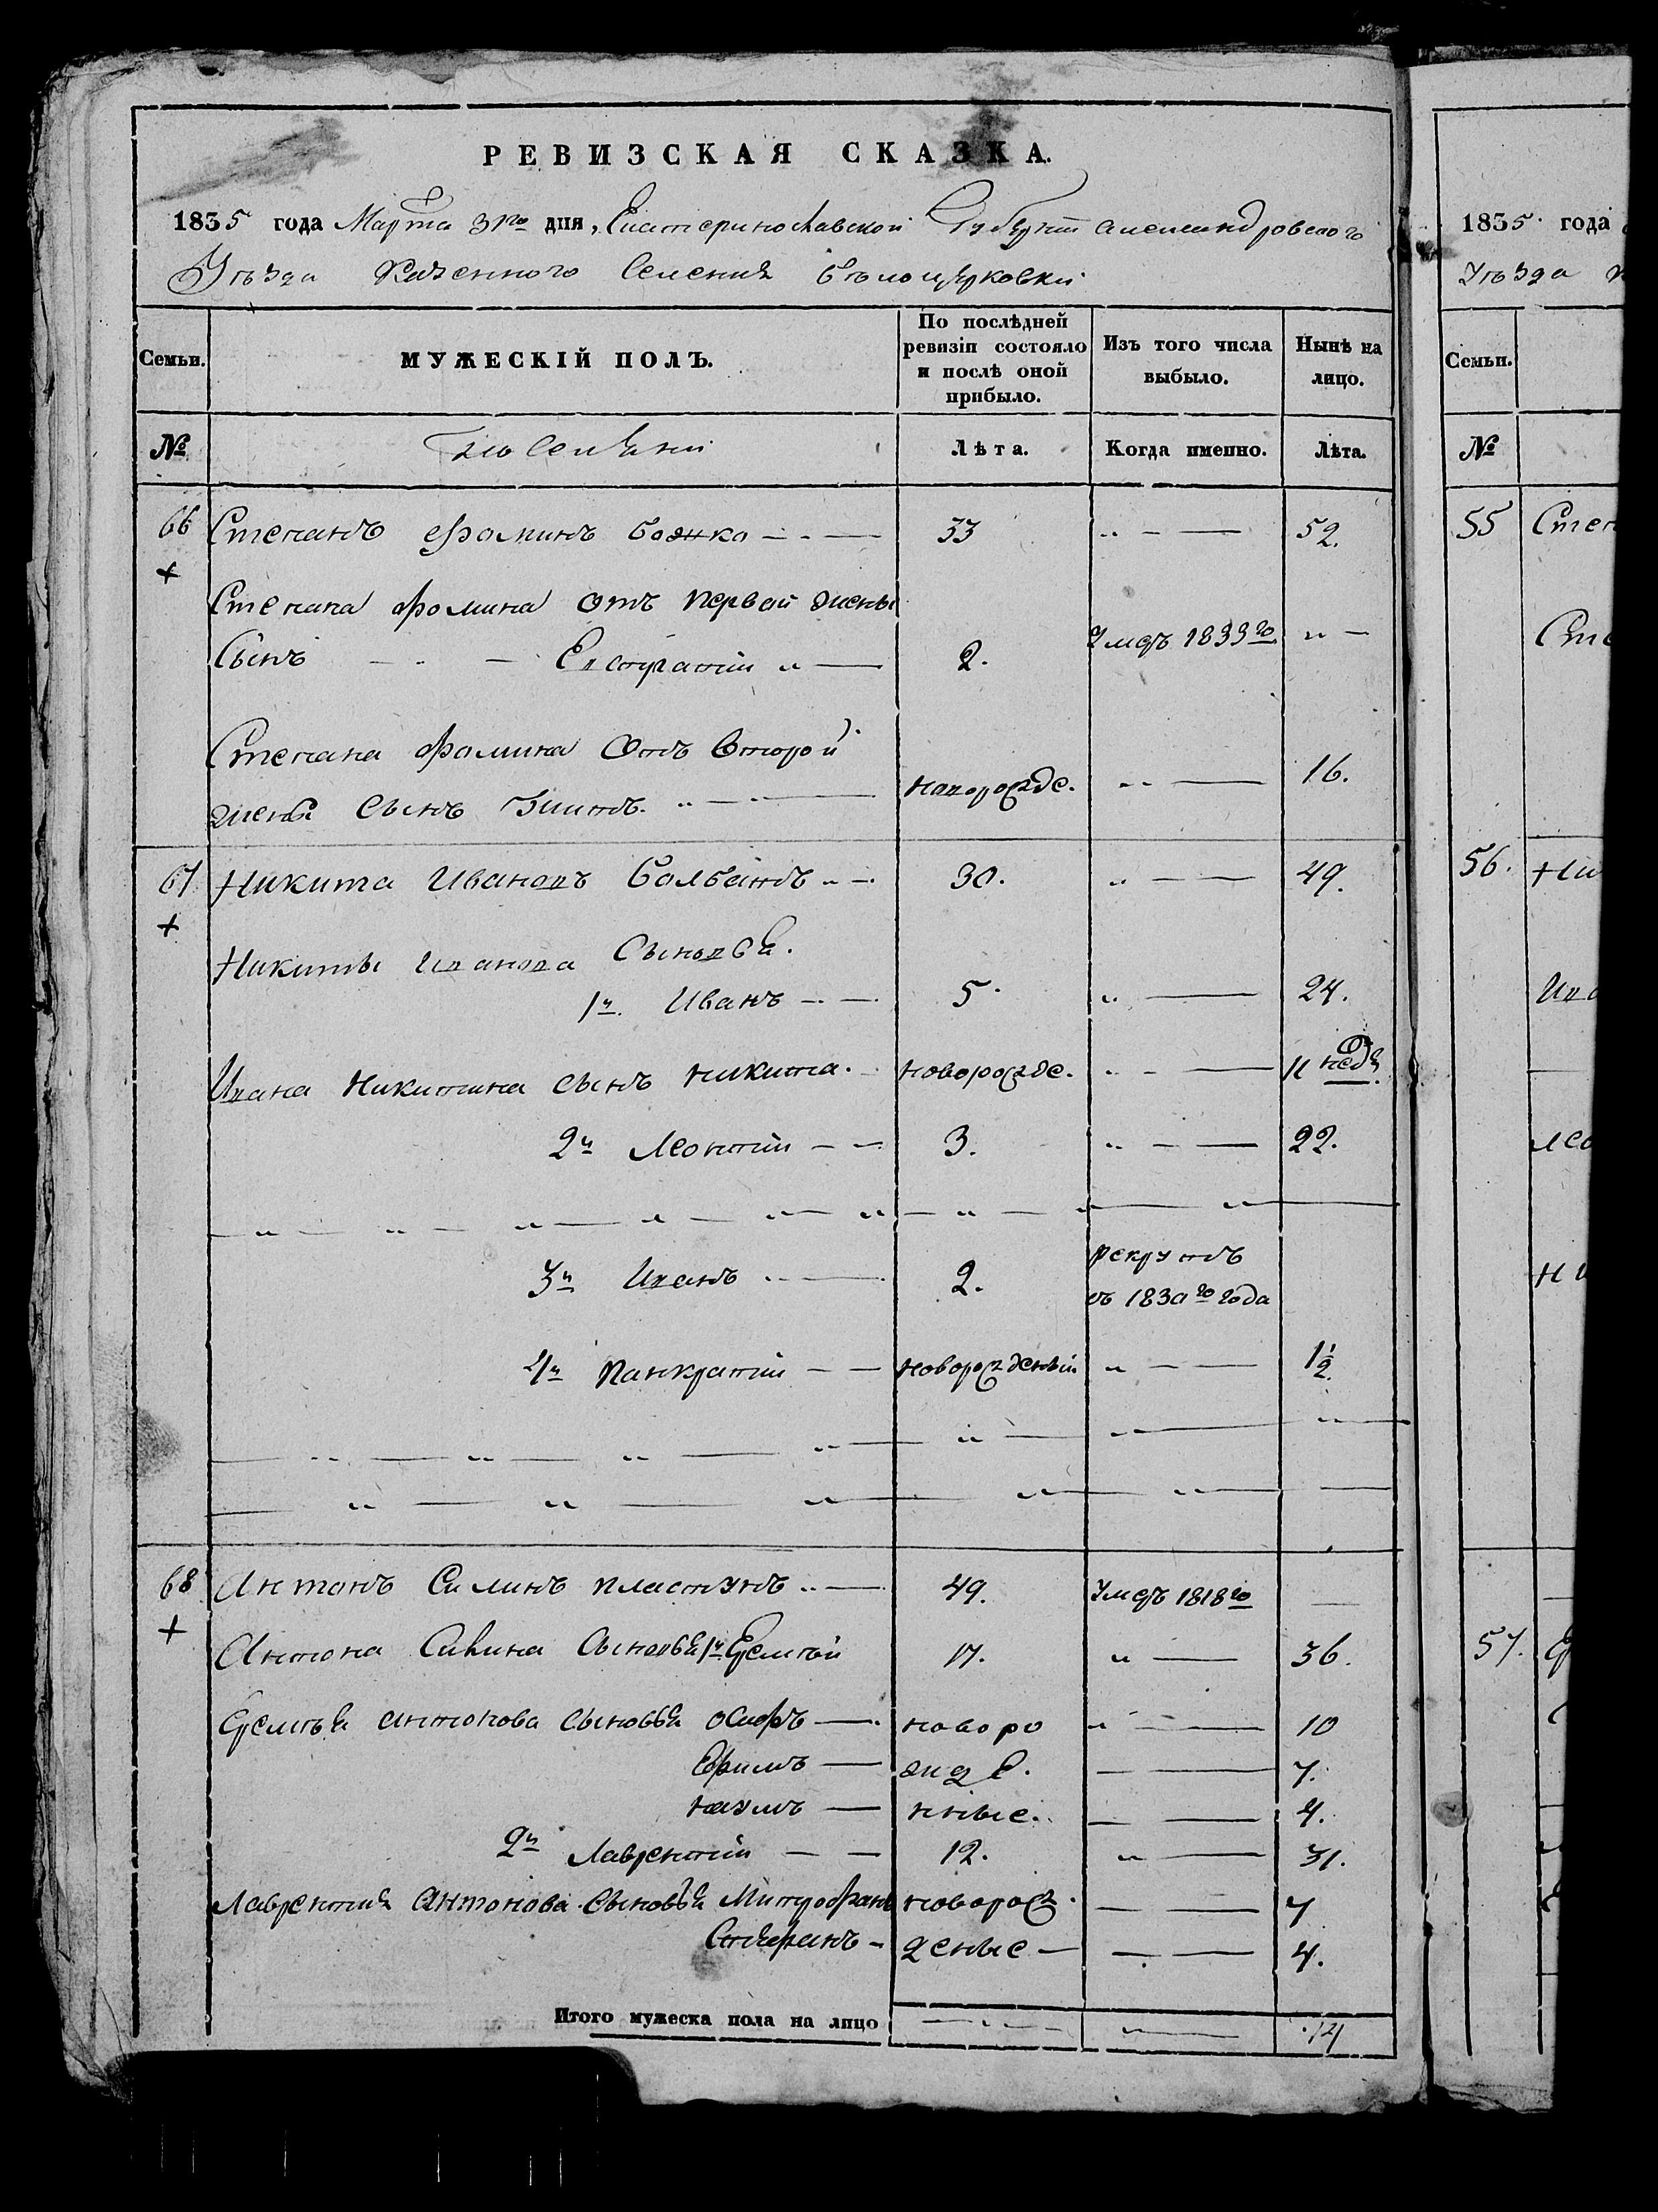 РЕВИЗСКАЯ СКАЗКА.
1835 года Марта 31го дня, Екатеринославской Губерніи Александровского
Уѣзда Казенного Селенія Бѣлоцерковки
Семьи. МУЖЕСКІЙ ПОЛЪ. По послѣдней ревизіи состояло и послѣ оной прибыло. Изъ того числа выбыло. Нынѣ на лицо.
№ Лѣта. Когда именно. Лѣта.
66 Степанъ Фоминъ Божко 33 52.
Степана Фомина Отъ первой жены
Сынъ Евстратій 2. Умеръ 1833го
Степана Фомина Отъ второй
жены Сынъ новорожде. 16.
67 Никита Ивановъ Балбанъ 30. 49.
Никиты Иванова Сыновья.
1й. Иванъ 5. 24.
Ивана Никитина сынъ Никита. новорожде. 11 недѣ.
2й Леонтій 3. 22.
3й Иванъ 2. рекрутъ
съ 1830го года
4й Панкратій новорожденый 1½
68 Антонъ Силинъ Пластунъ 49. Умеръ 1818го
Антона Силина Сыновья 1й Еремѣй 17. 36.
Еремѣя Антонова сыновья Осифъ новоро 10
Ефимъ жде 7.
Наумъ нные. 4.
2й Лаврентій 12. 31.
Лаврентія Антонова сыновья Митрофанъ новорож 7
Стефанъ деные 4.
Итого мужеска пола на лицо 12
1835 года
Уѣзда
Семьи.
№
55 Степ
56. Ни
Ива
Лео
57.